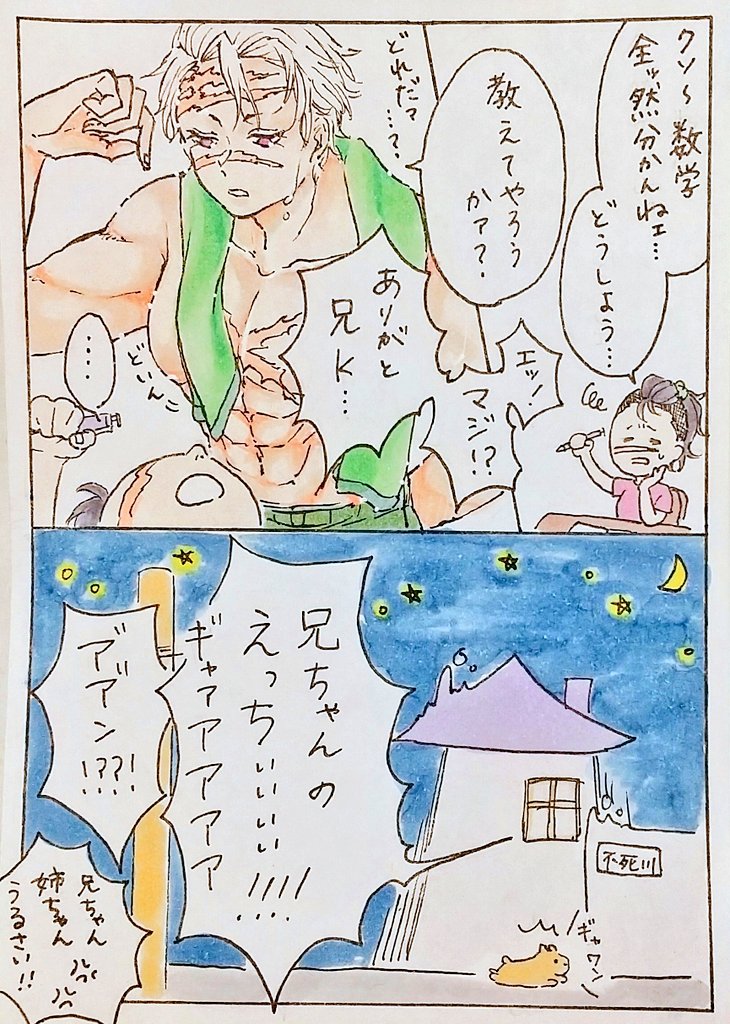 クソ〜数学
全ッ然分かんねェ…
どうしよう…
教えてやろう
かァ?
どれだァ
…?
エッ!
マジ!?
ありがと
兄K…
どこんこ
….
兄ちゃんの
えっちぃぃぃぃ!!!!
ギャァアアアアア
ア゛アン!??!
兄ちゃん
姉ちゃん
うるさい!!
不死川
ギャワン